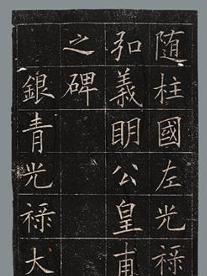 随柱國左光祿
弘義明公皇甫
之碑
銀青光祿大